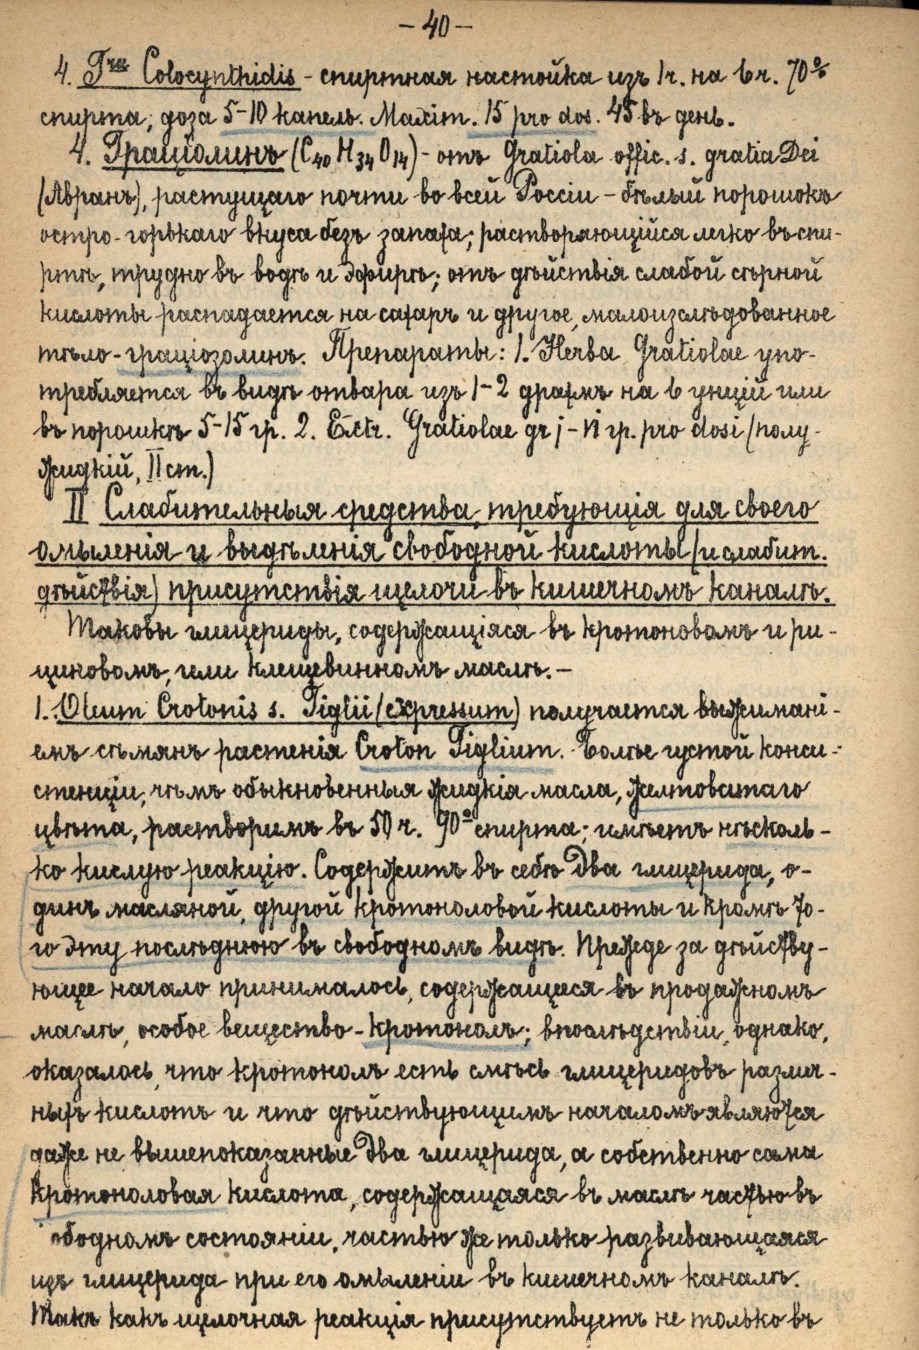 – 40 –
4. Tra Colocynthidis – спиртная настойка изъ 1 ч. на 6 ч. 70%
спирта; доза 5–10 капель. Maxim. 15 pro dos. 45 въ день.
4. Граціолинъ (C40 H34 O14) – отъ Gratiola offic. s. gratia Dei
(Авранъ), растущаго почти во всей Россіи – бѣлый порошокъ
остро-горькаго вкуса безъ запаха; растворяющійся легко въ спи-
ртѣ, трудно въ водѣ и эфирѣ; отъ дѣйствія слабой сѣрной
кислоты распадается на сахаръ и другое, малоизслѣдованное
тѣло – граціозолинъ. Препараты: 1. Herba Gratiolae упо-
требляется въ видѣ отвара изъ 1–2 драхмъ на 6 унцій или
въ порошкѣ 5–15 гр. 2. Extr. Gratiolae gr j – vi гр. pro dosi (полу-
жидкій, II ст.)
II Слабительныя средства, требующія для своего
омыленія и выдѣленія свободной кислоты (и слабит.
дѣйствія) присутствія щелочи въ кишечномъ каналѣ.
Таковы глицериды, содержащіяся въ кротоновомъ и ри-
циновомъ, или клещевинномъ маслѣ. –
1. Oleum Crotonis s. Tiglii (expressum) получается выжимані-
емъ сѣмянъ растенія Croton Tiglium. Болѣе густой конси-
стенціи, чѣмъ обыкновенныя жидкія масла, желтоватаго
цвѣта, растворимъ въ 50 ч. 90° спирта; имѣетъ нѣсколь-
ко кислую реакцію. Содержитъ въ себѣ два глицерида, о-
динъ масляной, другой кротоноловой кислоты и кромѣ то-
го эту послѣднюю въ свободномъ видѣ. Прежде за дѣйству-
ющее начало принималось, содержащееся въ продажномъ
маслѣ, особое вещество – кротонолъ; впослѣдствіи, однако,
оказалось, что кротонолъ есть смѣсь глицеридовъ различ-
ныхъ кислотъ и что дѣйствующимъ началомъ являются
даже не вышепоказанные два глицерида, а собственно сама
кротоноловая кислота, содержащаяся въ маслѣ частью въ
ободномъ состояніи, частью же только развивающаяся
изъ глицерида при его омыленіи въ кишечномъ каналѣ.
Такъ какъ щелочная реакція присутствуетъ не только въ